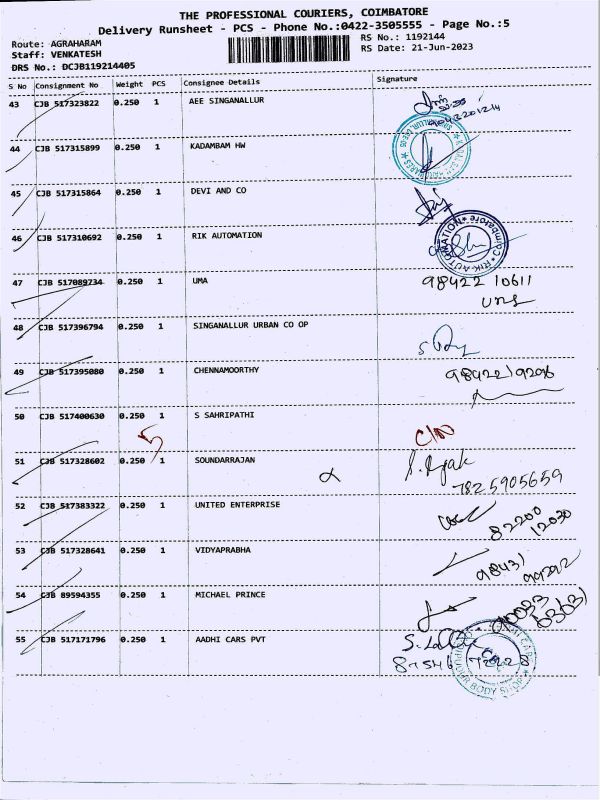 THE PROFESSIONAL COURIERS, COIMBATORE
Delivery Runsheet - PCS - Phone No.:0422-3505555 - Page No.:5
Route: AGRAHARAM
RS No.: 1192144
Staff: VENKATESH
RS Date: 21-Jun-2023
DRS No.: DCJB119214405
S No Consignment No Weight PCS Consignee Details Signature
43 CJB 517323822 0.250 1 AEE SINGANALLUR
44 CJB 517315899 0.250 1 KADAMBAM HW
45 CJB 517315864 0.250 1 DEVI AND CO
46 CJB 517310692 0.250 1 RIK AUTOMATION
RIK AUTOMATION * Coimbatore
47 CJB 517089734 0.250 1 UMA
98422 10611
uma
48 CJB 517396794 0.250 1 SINGANALLUR URBAN CO OP
49 CJB 517395080 0.250 1 CHENNAMOORTHY
50 CJB 517400630 0.250 1 S SAHRIPATHI
C/N
51 CJB 517328602 0.250 1 SOUNDARRAJAN
7825905659
52 CJB 517383322 0.250 1 UNITED ENTERPRISE
82200
12030
53 CJB 517328641 0.250 1 VIDYAPRABHA
98431
99292
54 CJB 89594355 0.250 1 MICHAEL PRINCE
55 CJB 517171796 0.250 1 AADHI CARS PVT
87546 72228
BODY SHOP